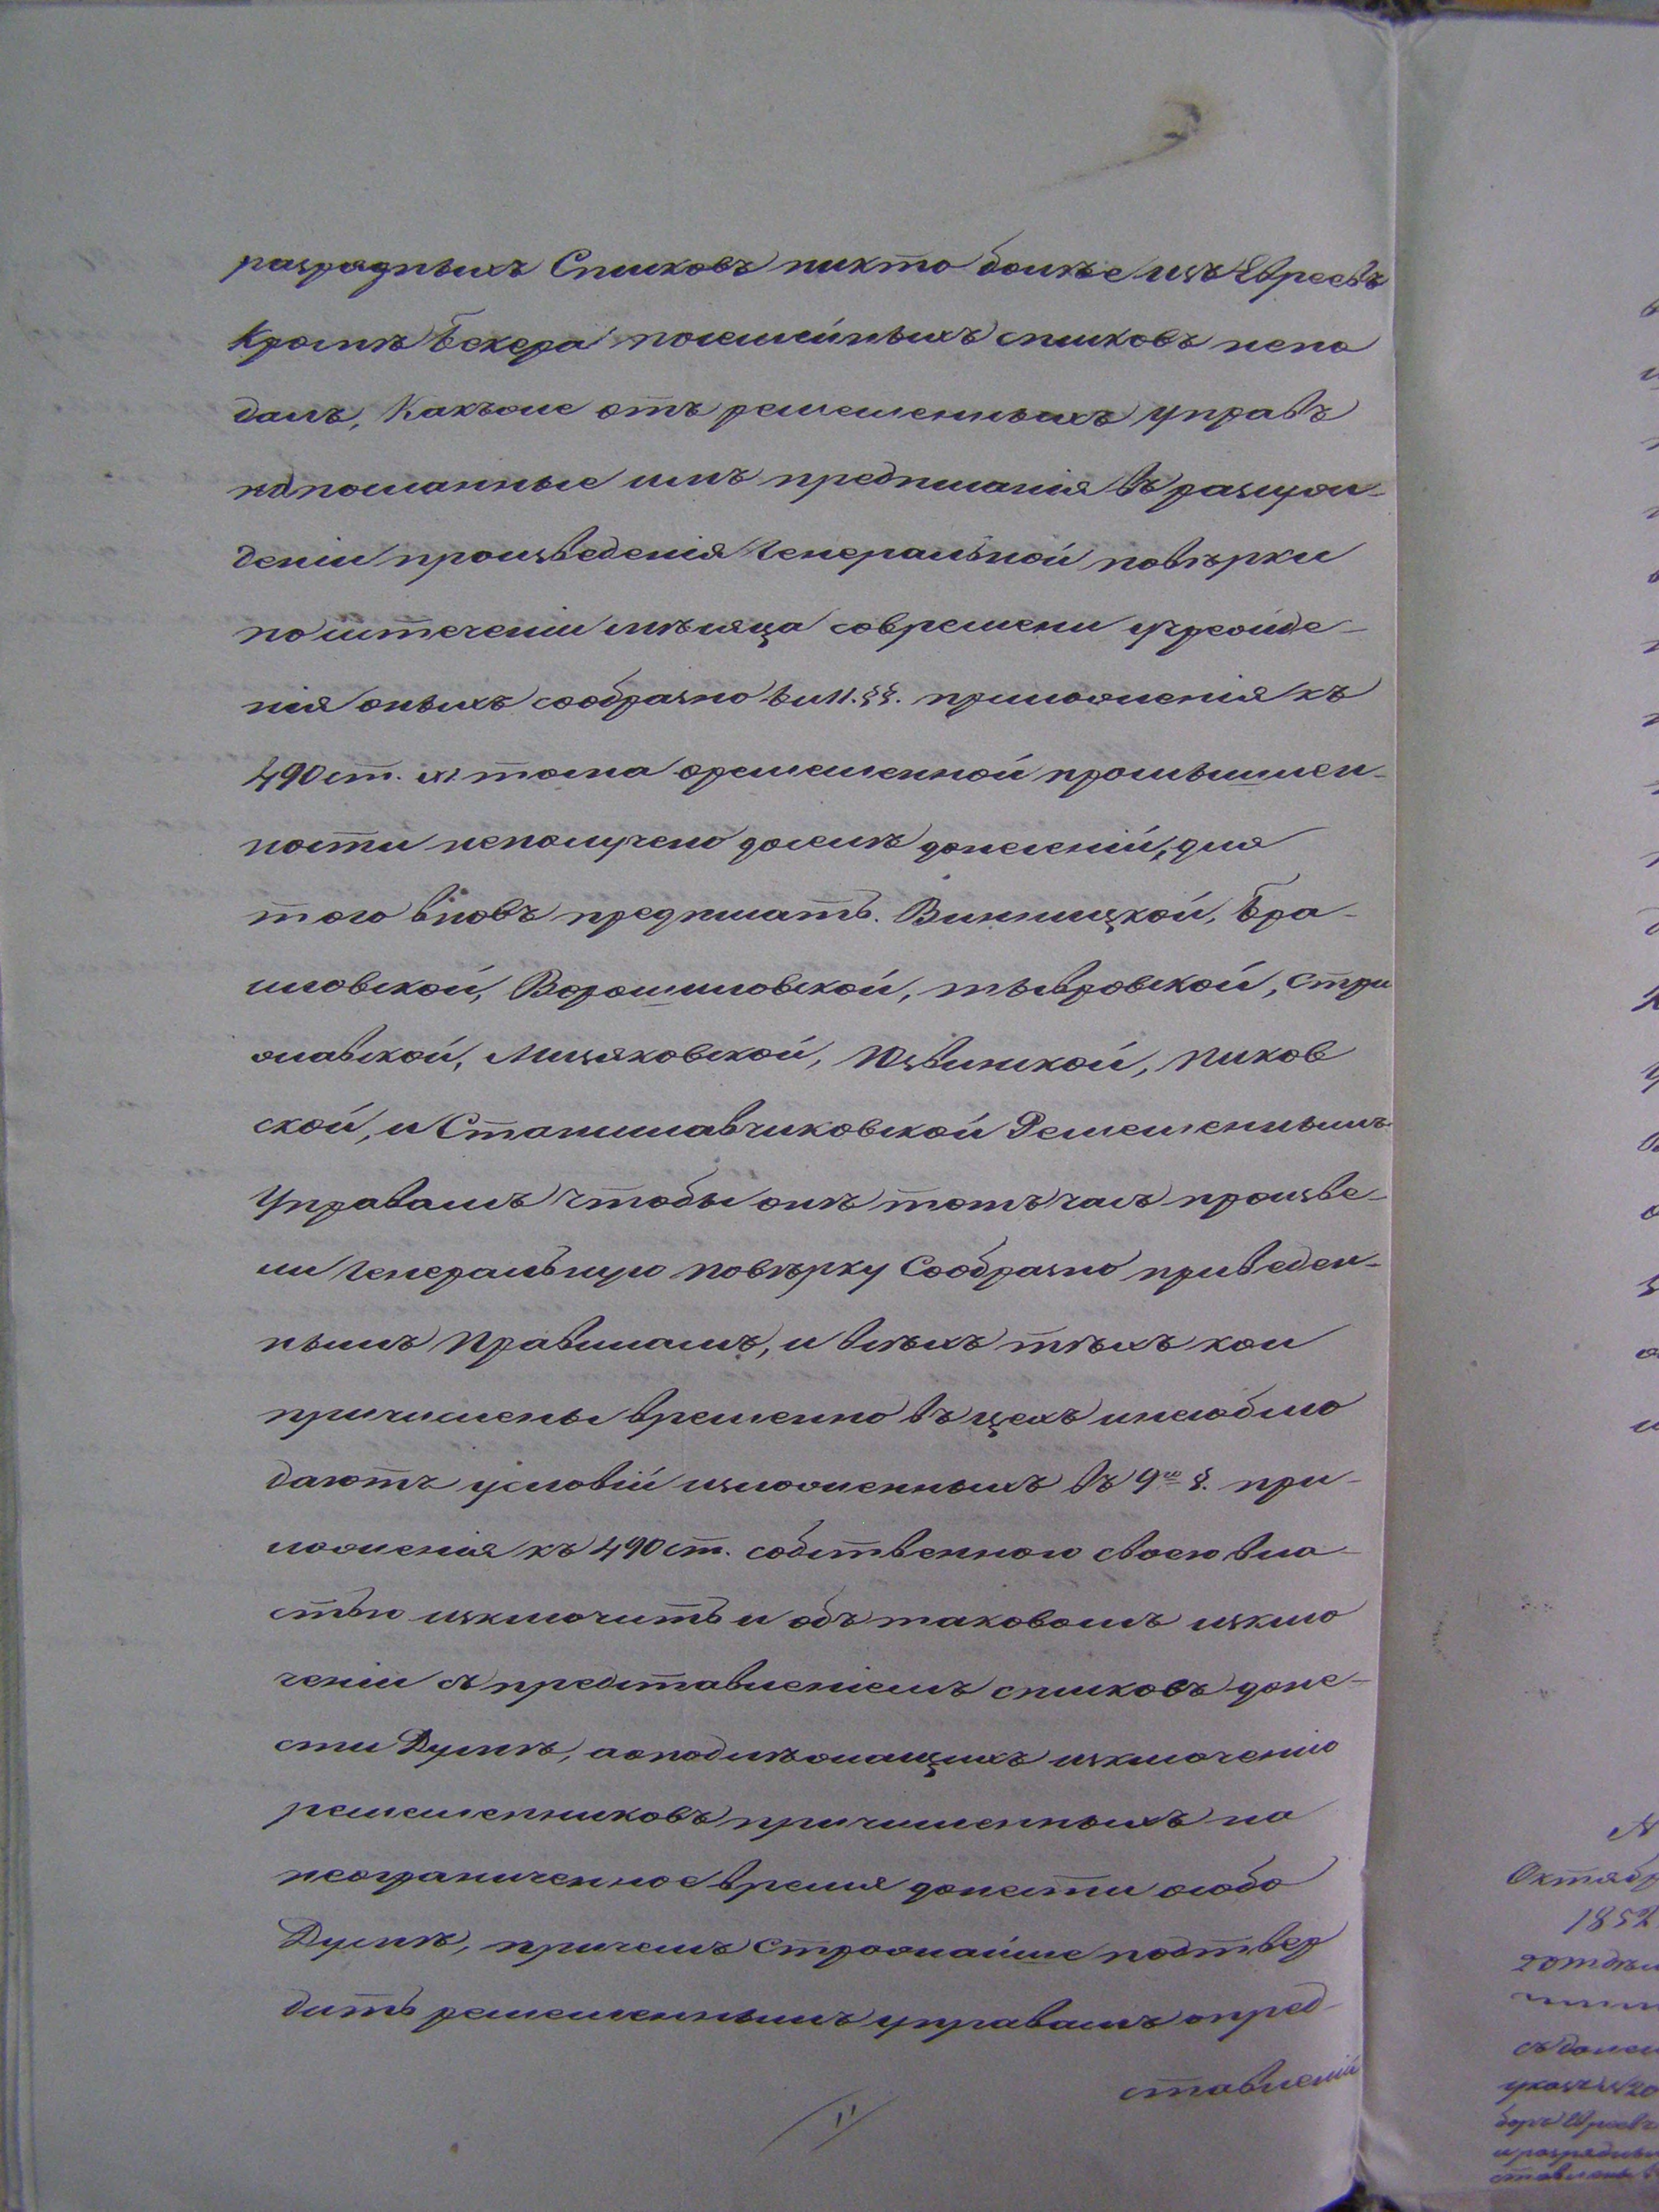 разрядныхъ Списковъ никто болѣе изъ Евреевъ
Кромѣ Бекера посемейныхъ списковъ непо
далъ, Какъже отъ ремесленныхъ управъ
на посланные имъ предписанія въ разсуж-
деніи произведенія Генеральной повѣрки
по истеченіи мѣсяца со времени учрежде-
нія оныхъ сообразно 8 и 11. §§. приложенія къ
490 ст. XI тома о ремесленной промышлен-
ности неполучено доселѣ донесеній, для
того вновь предписать. Винницкой, Бра-
иловской, Ворошиловской, тывровской, Стри
жавской, Мизяковской, Юзвинской, Пиков
ской, и Станиславчиковской Ремесленнымъ
Управамъ чтобы онѣ тотъ часъ произве-
ли Генеральную повѣрку Сообразно приведен-
нымъ Правиламъ, и всѣхъ тѣхъ кои
причислены временно въ цехъ и несоблю
даютъ условій изложенныхъ въ 9м §. при-
ложенія къ 490 ст. собственною своею вла-
стью изключить и объ таковомъ изклю
ченіи съ представленіемъ списковъ доне-
сти Думѣ, а о подлѣжащихъ изключенію
ремесленниковъ причисленныхъ на
неограниченное время донести особо
Думѣ, причемъ Строжайше подтвер
дить ремесленнымъ управамъ о пред-
ставленіи
11
Октябр
1852